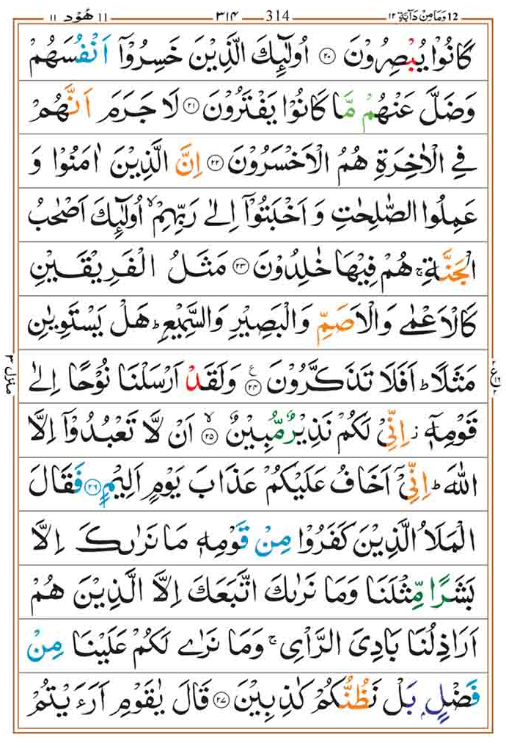 ١١ هُوْد ١١ ٣١٤ 314 وَمَا مِنْ دَآبَّةٍ ١٢ 12
كَانُوْا يُبْصِرُوْنَ ۝۲۰ اُولٰٓئِكَ الَّذِيْنَ خَسِرُوْۤا اَنْفُسَهُمْ
وَضَلَّ عَنْهُمْ مَّا كَانُوْا يَفْتَرُوْنَ ۝۲۱ لَا جَرَمَ اَنَّهُمْ
فِي الْاٰخِرَةِ هُمُ الْاَخْسَرُوْنَ ۝۲۲ اِنَّ الَّذِيْنَ اٰمَنُوْا وَ
عَمِلُوا الصّٰلِحٰتِ وَ اَخْبَتُوْۤا اِلٰى رَبِّهِمْ ۙ اُولٰٓئِكَ اَصْحٰبُ
الْجَنَّةِ ۚ هُمْ فِيْهَا خٰلِدُوْنَ ۝۲۳ مَثَلُ الْفَرِيْقَيْنِ
كَالْاَعْمٰى وَالْاَصَمِّ وَالْبَصِيْرِ وَالسَّمِيْعِ ؕ هَلْ يَسْتَوِيٰنِ
مَثَلًا ؕ اَفَلَا تَذَكَّرُوْنَ ۝۲۴ وَلَقَدْ اَرْسَلْنَا نُوْحًا اِلٰى
قَوْمِهٖۤ ۫ اِنِّيْ لَكُمْ نَذِيْرٌ مُّبِيْنٌ ۝۲۵ اَنْ لَّا تَعْبُدُوْۤا اِلَّا
اللّٰهَ ؕ اِنِّيْۤ اَخَافُ عَلَيْكُمْ عَذَابَ يَوْمٍ اَلِيْمٍ ۝۲۶ فَقَالَ
الْمَلَاُ الَّذِيْنَ كَفَرُوْا مِنْ قَوْمِهٖ مَا نَرٰىكَ اِلَّا
بَشَرًا مِّثْلَنَا وَمَا نَرٰىكَ اتَّبَعَكَ اِلَّا الَّذِيْنَ هُمْ
اَرَاذِلُنَا بَادِيَ الرَّاْيِ ۚ وَمَا نَرٰى لَكُمْ عَلَيْنَا مِنْ
فَضْلٍۭ بَلْ نَظُنُّكُمْ كٰذِبِيْنَ ۝۲۷ قَالَ يٰقَوْمِ اَرَءَيْتُمْ
منزل ٣